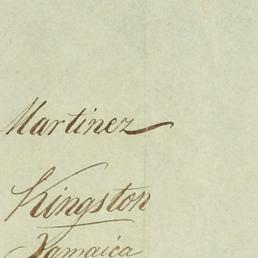 Martinez
Kingston
Jamaica